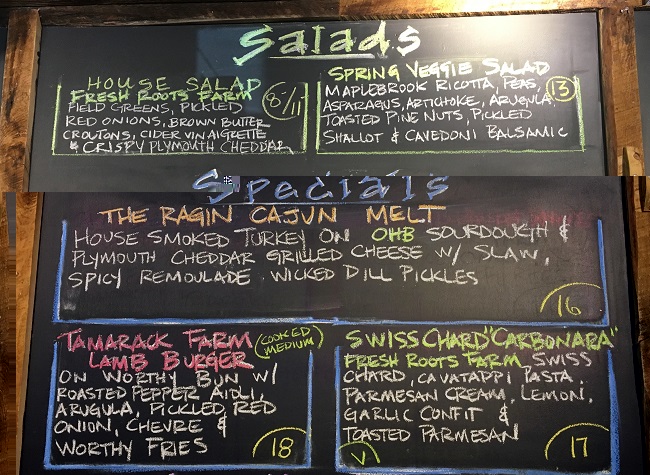 Salads
HOUSE SALAD
FRESH ROOTS FARM
FIELD GREENS, PICKLED
RED ONIONS, BROWN BUTTER
CROUTONS, CIDER VINAIGRETTE
& CRISPY PLYMOUTH CHEDDAR
8/11
SPRING VEGGIE SALAD
MAPLEBROOK RICOTTA, PEAS,
ASPARAGUS, ARTICHOKE, ARUGULA
TOASTED PINE NUTS, PICKLED
SHALLOT & CAVEDONI BALSAMIC
13
Specials
THE RAGIN CAJUN MELT
HOUSE SMOKED TURKEY ON OHB SOURDOUGH &
PLYMOUTH CHEDDAR GRILLED CHEESE W/ SLAW,
SPICY REMOULADE WICKED DILL PICKLES
16
TAMARACK FARM
LAMB BURGER
(COOKED
MEDIUM)
ON WORTHY BUN W/
ROASTED PEPPER AIOLI,
ARUGULA, PICKLED RED
ONION, CHEVRE &
WORTHY FRIES
18
SWISS CHARD "CARBONARA"
FRESH ROOTS FARM SWISS
CHARD, CAVATAPPI PASTA,
PARMESAN CREAM, LEMON,
GARLIC CONFIT &
TOASTED PARMESAN
V
17